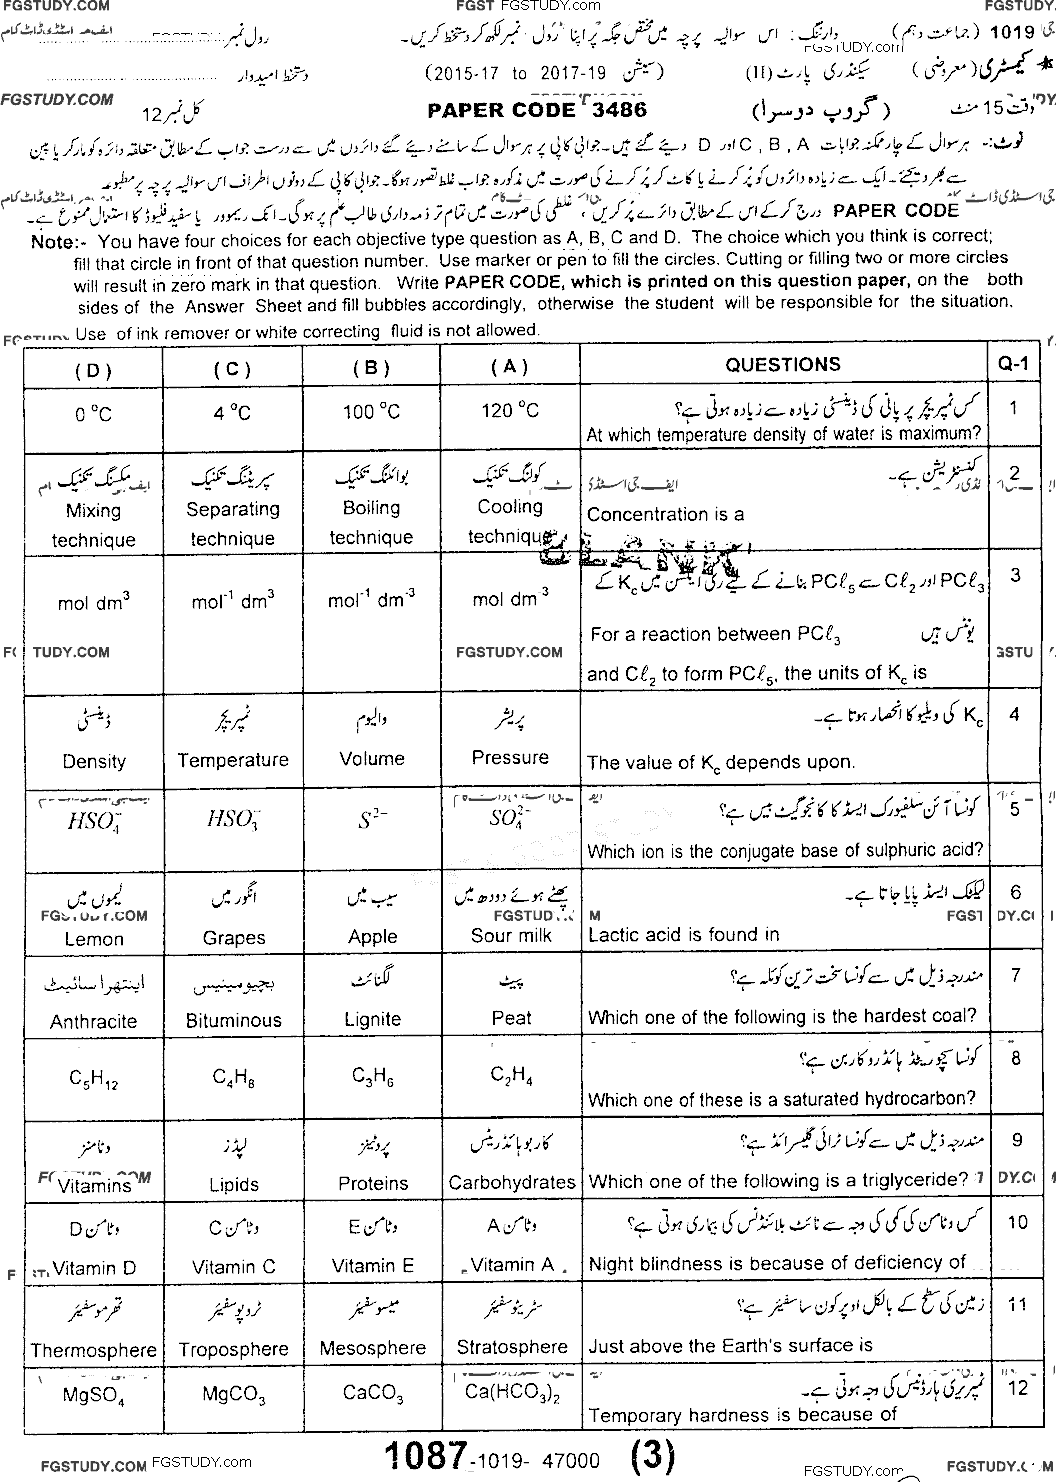 FGSTUDY.COM FGST FGSTUDY.com FGSTUDY.
رول نمبر FGSTUDY.com وارننگ: اس سوالیہ پرچہ میں مختص جگہ پر اپنا رول نمبر لکھ کر دستخط کریں۔ (جماعت دہم) 1019
FGSTUDY.com
دستخط امیدوار (2015-17 to 2017-19 سیشن) کیمسٹری (معروضی) سیکنڈری پارٹ (II)
FGSTUDY.COM کل نمبر 12 PAPER CODE 3486 (گروپ دوسرا) وقت 15 منٹ
نوٹ:- ہر سوال کے چار ممکنہ جوابات A , B , C اور D دیئے گئے ہیں۔ جوابی کاپی پر ہر سوال کے سامنے دیئے گئے دائروں میں سے درست جواب کے مطابق متعلقہ دائرہ کو مارکر یا پین
سے بھر دیجئے۔ ایک سے زیادہ دائروں کو پُر کرنے یا کاٹ کر پُر کرنے کی صورت میں مذکورہ جواب غلط تصور ہوگا۔ جوابی کاپی کے دونوں اطراف اس سوالیہ پرچہ پر مطبوعہ
PAPER CODE درج کر کے اس کے مطابق دائرے پُر کریں، غلطی کی صورت میں تمام تر ذمہ داری طالب علم پر ہوگی۔ انک ریمور یا سفید فلیوڈ کا استعمال ممنوع ہے۔
Note:- You have four choices for each objective type question as A, B, C and D. The choice which you think is correct;
fill that circle in front of that question number. Use marker or pen to fill the circles. Cutting or filling two or more circles
will result in zero mark in that question. Write PAPER CODE, which is printed on this question paper, on the both
sides of the Answer Sheet and fill bubbles accordingly, otherwise the student will be responsible for the situation.
Use of ink remover or white correcting fluid is not allowed.
(D) (C) (B) (A) QUESTIONS Q-1
0 °C 4 °C 100 °C 120 °C کس ٹمپریچر پر پانی کی ڈینسٹی زیادہ سے زیادہ ہوتی ہے؟ 1
At which temperature density of water is maximum?
مکسنگ تکنیک سپریٹنگ تکنیک بوائلنگ تکنیک کولنگ تکنیک کنسنٹریشن ہے۔ 2
Mixing Separating Boiling Cooling Concentration is a
technique technique technique technique
BLANK
mol dm³ mol⁻¹ dm³ mol⁻¹ dm⁻³ mol dm⁻³ PCℓ₃ اور Cℓ₂ سے PCℓ₅ بنانے کے لیے ری ایکشن میں Kc کے 3
For a reaction between PCℓ₃ یونٹس ہیں
FGSTUDY.COM
and Cℓ₂ to form PCℓ₅, the units of Kc is
ڈینسٹی ٹمپریچر والیوم پریشر Kc کی ویلیو کا انحصار ہوتا ہے۔ 4
Density Temperature Volume Pressure The value of Kc depends upon.
HSO₄⁻ HSO₃⁻ S²⁻ SO₄²⁻ کونسا آئن سلفیورک ایسڈ کا کانجوگیٹ بیس ہے؟ 5
Which ion is the conjugate base of sulphuric acid?
لیموں میں انگور میں سیب میں پھٹے ہوئے دودھ میں لیکٹک ایسڈ پایا جاتا ہے۔ 6
Lemon Grapes Apple Sour milk Lactic acid is found in
اینتھراسائیٹ بچیومینیس لگنائٹ پیٹ مندرجہ ذیل میں سے کونسا سخت ترین کوئلہ ہے؟ 7
Anthracite Bituminous Lignite Peat Which one of the following is the hardest coal?
C₅H₁₂ C₄H₈ C₃H₆ C₂H₄ کونسا سیچوریٹڈ ہائڈروکاربن ہے؟ 8
Which one of these is a saturated hydrocarbon?
وٹامنز لپڈز پروٹینز کاربوہائڈریٹس مندرجہ ذیل میں سے کونسا ٹرائی گلیسرائڈ ہے؟ 9
Vitamins Lipids Proteins Carbohydrates Which one of the following is a triglyceride?
وٹامن D وٹامن C وٹامن E وٹامن A کس وٹامن کی کمی کی وجہ سے نائٹ بلائنڈنس کی بیماری ہوتی ہے؟ 10
Vitamin D Vitamin C Vitamin E Vitamin A Night blindness is because of deficiency of
تھرموسفیئر ٹروپوسفیئر میسوسفیئر سٹریٹوسفیئر زمین کی سطح کے بالکل اوپر کون سا سفیئر ہے؟ 11
Thermosphere Troposphere Mesosphere Stratosphere Just above the Earth's surface is
MgSO₄ MgCO₃ CaCO₃ Ca(HCO₃)₂ ٹمپریری ہارڈنیس کی وجہ ہوتی ہے۔ 12
Temporary hardness is because of
1087-1019- 47000 (3)
FGSTUDY.COM FGSTUDY.com FGSTUDY.com